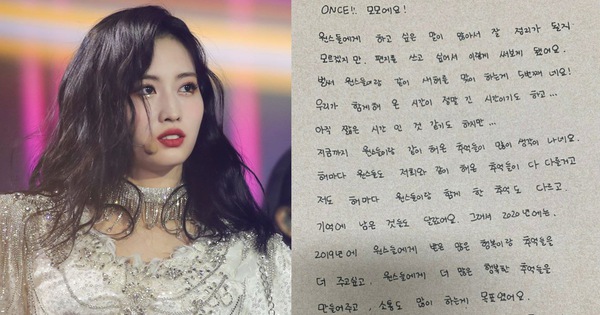 ONCE!! 모모예요!
원스들에게 하고 싶은 말이 많아서 잘 정리가 될지
모르겠지만, 편지를 쓰고 싶어서 이렇게 써보게 됐어요.
벌써 원스들이랑 같이 새해를 맞이 하는게 5번째 네요!
우리가 함께해 온 시간이 정말 긴 시간이기도 하고...
아직 짧은 시간 인 것 같기도 하지만...
지금까지 원스들이랑 같이 해온 추억들이 많이 생각이 나네요.
해마다 원스들도 저희와 같이 해온 추억들이 다 다를거고
저도 해마다 원스들이랑 함께 한 추억도 다르고.
기억에 남은 것들도 달랐어요. 그래서 2020년에는.
2019년에 원스들에게 받은 많은 행복이랑 추억들을
더 주고싶고, 원스들에게 더 많은 행복한 추억들을
만들어주고, 소통도 많이 하는게 목표였어요.